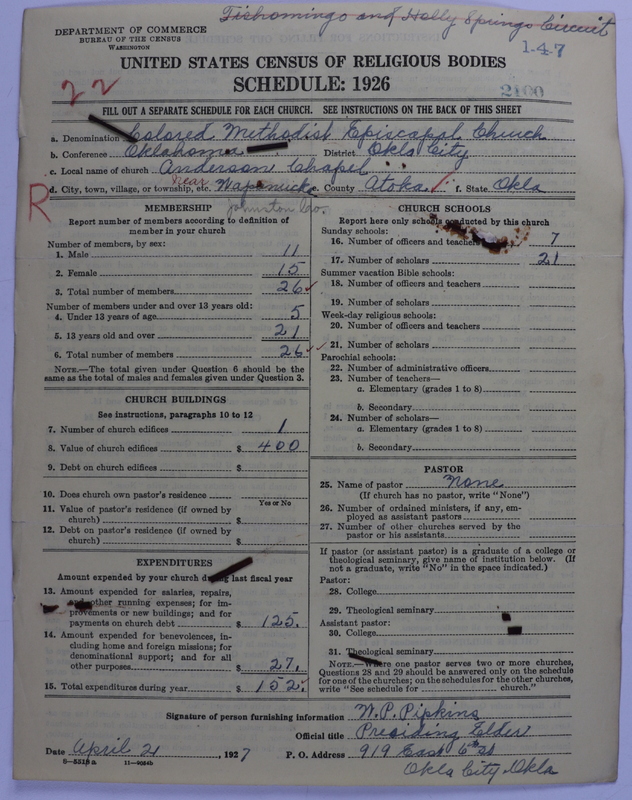 Tishomingo and Holly Springs Circuit
DEPARTMENT OF COMMERCE
BUREAU OF THE CENSUS
WASHINGTON
1-4-7
UNITED STATES CENSUS OF RELIGIOUS BODIES
SCHEDULE: 1926
22
2100
FILL OUT A SEPARATE SCHEDULE FOR EACH CHURCH. SEE INSTRUCTIONS ON THE BACK OF THIS SHEET
a. Denomination Colored Methodist Episcopal Church
b. Conference Oklahoma District Okla City
c. Local name of church Anderson Chapel
d. City, town, village, or township, etc. near Wapanucka e. County Atoka f. State Okla
R
Johnston Co.
MEMBERSHIP
Report number of members according to definition of
member in your church
Number of members, by sex:
1. Male 11
2. Female 15
3. Total number of members 26
Number of members under and over 13 years old:
4. Under 13 years of age 5
5. 13 years old and over 21
6. Total number of members 26
NOTE.—The total given under Question 6 should be
same as the total of males and females given under Question 3.
CHURCH BUILDINGS
See instructions, paragraphs 10 to 12
7. Number of church edifices 1
8. Value of church edifices $ 400
9. Debt on church edifices $
10. Does church own pastor's residence
Yes or No
11. Value of pastor's residence (if owned by
church) $
12. Debt on pastor's residence (if owned by
church) $
EXPENDITURES
Amount expended by your church during last fiscal year
13. Amount expended for salaries, repairs,
and other running expenses; for im-
provements or new buildings; and for
payments on church debt $ 125.
14. Amount expended for benevolences, in-
cluding home and foreign missions; for
denominational support; and for all
other purposes $ 27.
15. Total expenditures during year $ 152.
CHURCH SCHOOLS
Report here only schools conducted by this church
Sunday schools:
16. Number of officers and teachers 7
17. Number of scholars 21
Summer vacation Bible schools:
18. Number of officers and teachers
19. Number of scholars
Week-day religious schools:
20. Number of officers and teachers
21. Number of scholars
Parochial schools:
22. Number of administrative officers
23. Number of teachers—
a. Elementary (grades 1 to 8)
b. Secondary
24. Number of scholars—
a. Elementary (grades 1 to 8)
b. Secondary
PASTOR
25. Name of pastor None
(If church has no pastor, write "None")
26. Number of ordained ministers, if any, em-
ployed as assistant pastors
27. Number of other churches served by the
pastor or his assistants
If pastor (or assistant pastor) is a graduate of a college or
theological seminary, give name of institution below. (If
not a graduate, write "No" in the space indicated.)
Pastor:
28. College
29. Theological seminary
Assistant pastor:
30. College
31. Theological seminary
NOTE.—Where one pastor serves two or more churches,
Questions 28 and 29 should be answered only on the schedule
for one of the churches; on the schedules for the other churches,
write "See schedule for church."
Signature of person furnishing information W.P. Pipkins
Official title Presiding Elder
Date April 21, 1927 P. O. Address 919 East 6th St
8-5518a 11-9054b
Okla City Okla